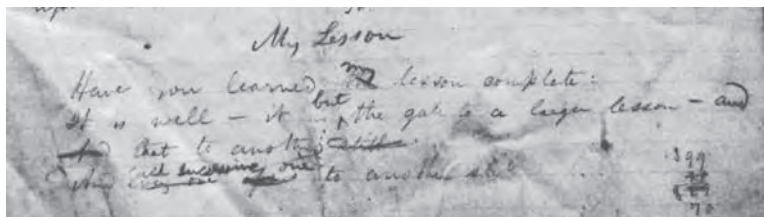 My Lesson
Have you learned my lesson complete:
It is well – it is but the gate to a larger lesson – and
And that to another still
And each successive one to another still
1899